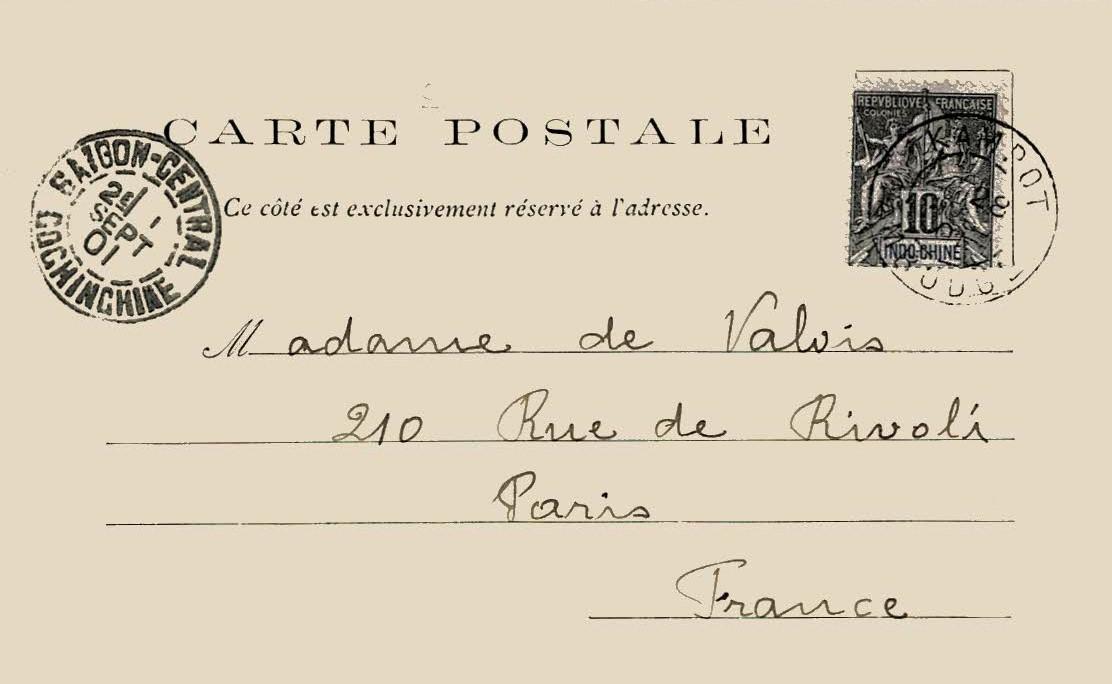 REPVBLIQVE FRANÇAISE
COLONIES
10
INDO-CHINE
CARTE POSTALE
SAIGON-CENTRAL
SEPT
01
COCHINCHINE
Ce côté est exclusivement réservé à l'adresse.
Madame de Valois
210 Rue de Rivoli
Paris
France